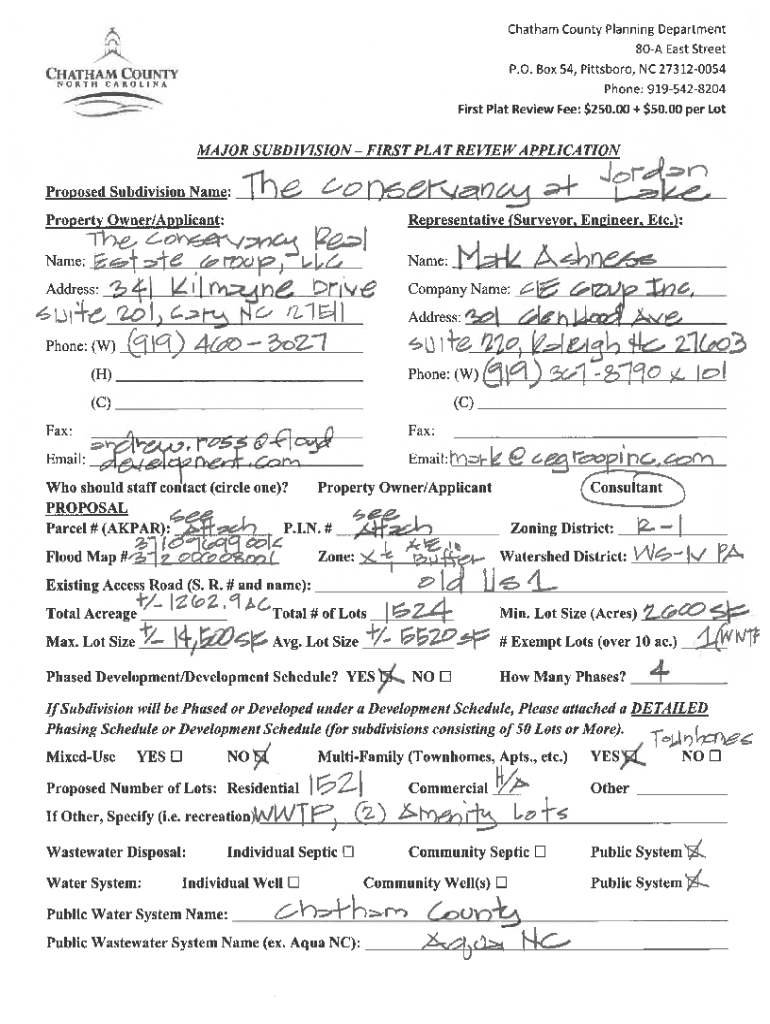 Chatham County Planning Department
80-A East Street
P.O. Box 54, Pittsboro, NC 27312-0054
Phone: 919-542-8204
First Plat Review Fee: $250.00 + $50.00 per Lot
CHATHAM COUNTY
NORTH CAROLINA
MAJOR SUBDIVISION – FIRST PLAT REVIEW APPLICATION
Proposed Subdivision Name: The Conservancy at Jordan Lake
Property Owner/Applicant: Representative (Surveyor, Engineer, Etc.):
Name: The Conservancy Real Estate Group, LLC Name: Mark Ashness
Address: 341 Kilmayne Drive Company Name: CE Group Inc.
Suite 201, Cary NC 27511 Address: 301 Glenwood Ave
Phone: (W) (919) 460-3027 Suite 220, Raleigh NC 27603
(H) Phone: (W) (919) 367-8790 x 101
(C) (C)
Fax: Fax:
Email: andrew.ross@floyddevelopment.com Email: mark@cegroupinc.com
Who should staff contact (circle one)? Property Owner/Applicant Consultant
PROPOSAL
Parcel # (AKPAR): See Attach P.I.N. # See Attach Zoning District: R-1
Flood Map # Zone: X & AE in Buffer Watershed District: WS-IV PA
Existing Access Road (S. R. # and name): Old US 1
Total Acreage +/- 1262.9 AC Total # of Lots 1524 Min. Lot Size (Acres) 2600 SF
Max. Lot Size +/- 14,500 SF Avg. Lot Size +/- 5520 SF # Exempt Lots (over 10 ac.) 1 (WWTP
Phased Development/Development Schedule? YES ☒ NO ☐ How Many Phases? 4
If Subdivision will be Phased or Developed under a Development Schedule, Please attached a DETAILED
Phasing Schedule or Development Schedule (for subdivisions consisting of 50 Lots or More).
Mixed-Use YES ☐ NO ☒ Multi-Family (Townhomes, Apts., etc.) YES ☒ Townhomes NO ☐
Proposed Number of Lots: Residential 1521 Commercial N/A Other
If Other, Specify (i.e. recreation) WWTP, (2) Amenity Lots
Wastewater Disposal: Individual Septic ☐ Community Septic ☐ Public System ☒
Water System: Individual Well ☐ Community Well(s) ☐ Public System ☒
Public Water System Name: Chatham County
Public Wastewater System Name (ex. Aqua NC): Aqua NC